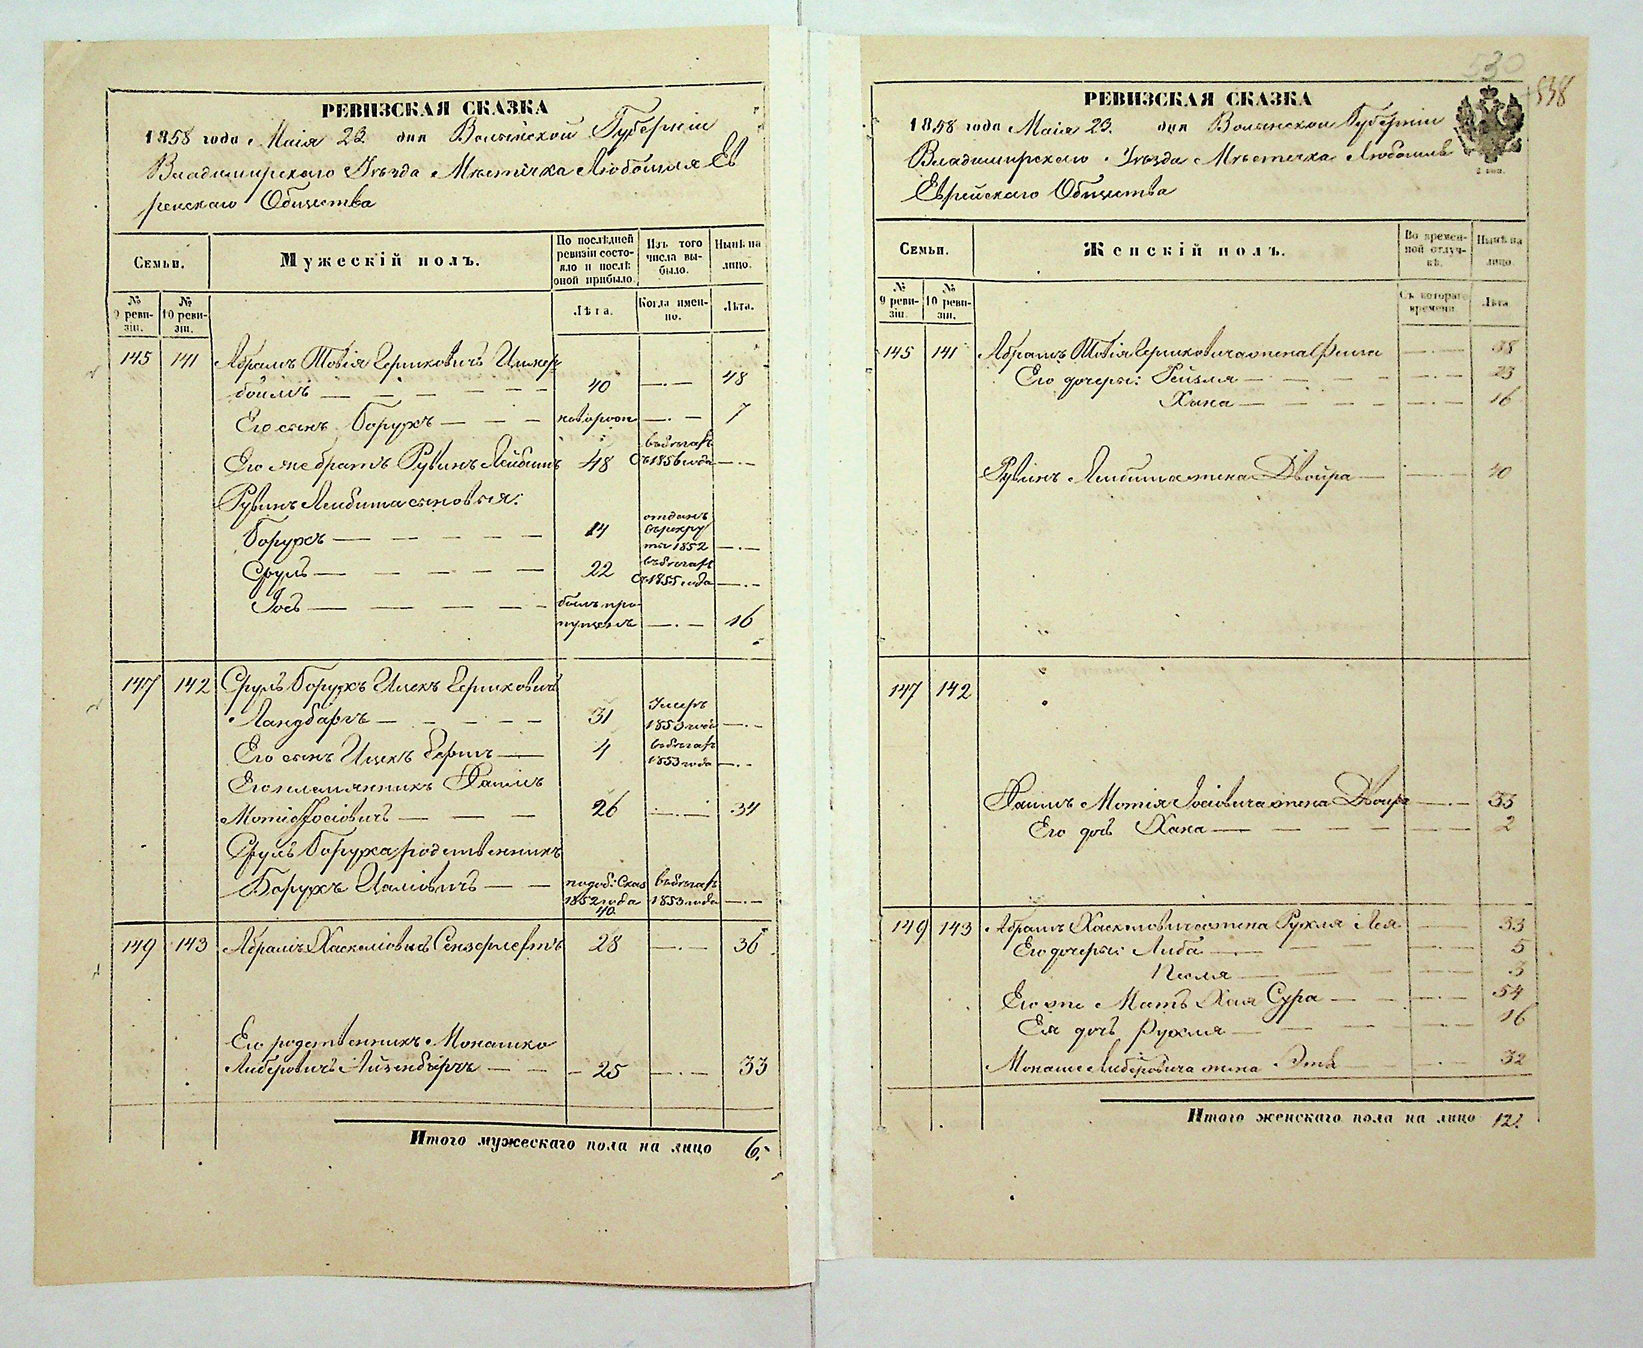 РЕВИЗСКАЯ СКАЗКА
1858 года Маія 23 дня Волынской Губерніи
Владимирскаго Уѣзда Мѣстечка Любомля Ев
рейскаго Общества
Семьи.
Мужескій полъ.
По послѣдней ревизіи состояло и послѣ оной прибыло.
Изъ того числа выбыло.
Нынѣ на лицо.
№ 9 ревизіи.
№ 10 ревизіи.
Лѣта.
Когда именно.
Лѣта.
145 141 Абрамъ Товія Гершковичъ
40 — 48
Его сынъ Борухъ — новорож — 7
Его же братъ Рувинъ Лейбишъ 48 въ бѣгахъ съ 1856 года —
Рувинъ Лейбиша сыновья:
Борухъ — 14 отданъ въ рекруты 1852 —
Сруль — 22 въ бѣгахъ съ 1855 года —
Іось — былъ пропущенъ — 16
147 142 Сруль Борухъ Ицекъ Гершковичъ
Ландбергъ — 31 Умеръ 1853 года —
Его сынъ Ицекъ Берко — 4 въ бѣгахъ 1853 года —
Его племянникъ
Мотія Іосіовичъ — 26 — 34
Сруль Боруха родственникъ
Борухъ — 1852 года 40 въ бѣгахъ 1853 года —
149 143 Абрамъ Хаскеліовичъ 28 — 36
Его родственникъ Монашко
Либеровичъ Айзенбергъ — 25 — 33
Итого мужескаго пола на лицо 6.
530
538
РЕВИЗСКАЯ СКАЗКА
1858 года Маія 23. дня Волынской Губерніи
Владимирскаго Уѣзда Мѣстечка Любомля
Еврейскаго Общества
Семьи.
Женскій полъ.
Во временной отлучкѣ.
Нынѣ на лицо.
№ 9 ревизіи.
№ 10 ревизіи.
Съ котораго времени.
Лѣта.
145 141 Абрамъ Товія Гершковича жена Фейга — 38
Его дочери: Рейзля — 23
Хана — 16
Рувинъ Лейбиша жена Двойра — 40
147 142
Мотія Іосіовича жена Двойра — 33
Его дочь Хана — 2
149 143 Абрамъ Хаскеліовича жена Рухля Лея — 33
Его дочери: Либа — 5
Песля — 3
Его же Мать Хая Сура — 54
Ея дочь Рухля — 16
Монаше Либеровича жена — 32
Итого женскаго пола на лицо 12.